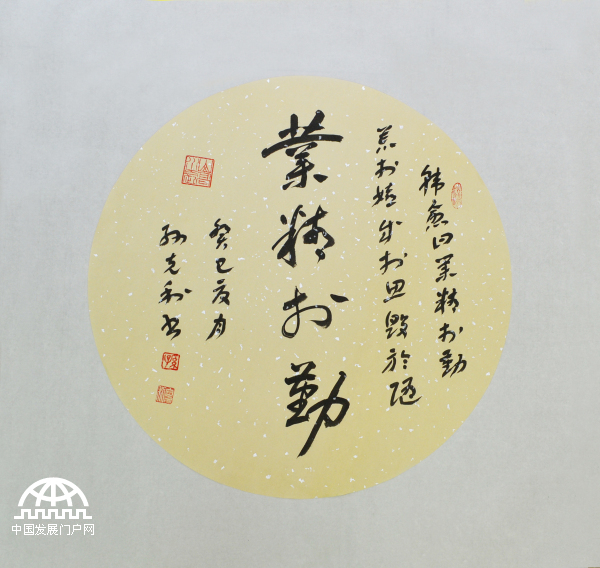 韓愈曰業精於勤
荒於嬉成於思毁於随
業精於勤
癸巳夏月
孙克利书
中国发展门户网